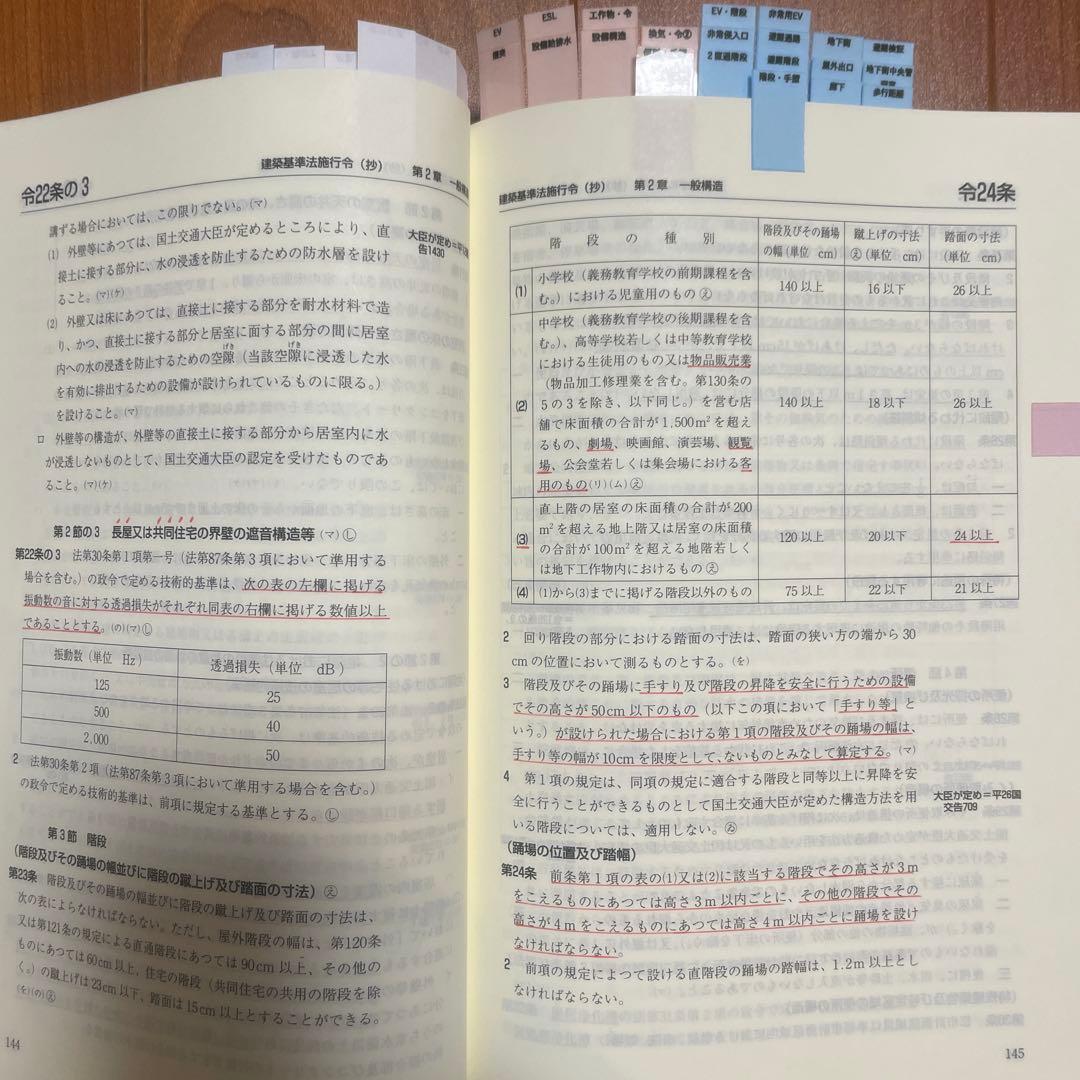 EV
ESL
設備給排水
工作物・令
設備構造
換気・令②
EV・階段
非常侵入口
2直通階段
非常用EV
避難通路
避難階段
階段・手摺
地下街
屋外出口
廊下
避難検証
地下街中央管
歩行距離
令22条の3
建築基準法施行令(抄) 第2章 一般構造
講ずる場合においては、この限りでない。(マ)
(1) 外壁等にあつては、国土交通大臣が定めるところにより、直
接土に接する部分に、水の浸透を防止するための防水層を設け
ること。(マ)(ケ)
大臣が定め=平12建
告1430
(2) 外壁又は床にあつては、直接土に接する部分を耐水材料で造
り、かつ、直接土に接する部分と居室に面する部分の間に居室
内への水の浸透を防止するための空隙(当該空隙に浸透した水
げき
げき
を有効に排出するための設備が設けられているものに限る。)
を設けること。(マ)
ロ 外壁等の構造が、外壁等の直接土に接する部分から居室内に水
が浸透しないものとして、国土交通大臣の認定を受けたものであ
ること。(マ)(ケ)
第2節の3 長屋又は共同住宅の界壁の遮音構造等(マ)Ⓛ
第22条の3 法第30条第1項第一号(法第87条第3項において準用する
場合を含む。)の政令で定める技術的基準は、次の表の左欄に掲げる
振動数の音に対する透過損失がそれぞれ同表の右欄に掲げる数値以上
であることとする。(の)(マ)Ⓛ
振動数(単位 Hz) 透過損失(単位 dB)
125 25
500 40
2,000 50
2 法第30条第2項(法第87条第3項において準用する場合を含む。)
の政令で定める技術的基準は、前項に規定する基準とする。Ⓛ
第3節 階段
(階段及びその踊場の幅並びに階段の蹴上げ及び踏面の寸法)㋓
第23条 階段及びその踊場の幅並びに階段の蹴上げ及び踏面の寸法は、
次の表によらなければならない。ただし、屋外階段の幅は、第120条
又は第121条の規定による直通階段にあつては90cm以上、その他の
ものにあつては60cm以上、住宅の階段(共同住宅の共用の階段を除
く。)の蹴上げは23cm以下、踏面は15cm以上とすることができる。
(を)(の)㋓
144
建築基準法施行令(抄) 第2章 一般構造
令24条
階段の種別 階段及びその踊場の幅(単位 cm) 蹴上げの寸法㋓(単位 cm) 踏面の寸法(単位 cm)
(1) 小学校(義務教育学校の前期課程を含
む。)における児童用のもの㋓ 140以上 16以下 26以上
中学校(義務教育学校の後期課程を含
む。)、高等学校若しくは中等教育学校
における生徒用のもの又は物品販売業
(物品加工修理業を含む。第130条の
(2) 5の3を除き、以下同じ。)を営む店 140以上 18以下 26以上
舗で床面積の合計が1,500m²を超え
るもの、劇場、映画館、演芸場、観覧
場、公会堂若しくは集会場における客
用のもの(リ)(ム)㋓
直上階の居室の床面積の合計が200
(3) m²を超える地上階又は居室の床面積 120以上 20以下 24以上
の合計が100m²を超える地階若しく
は地下工作物内におけるもの㋓
(4) (1)から(3)までに掲げる階段以外のもの 75以上 22以下 21以上
2 回り階段の部分における踏面の寸法は、踏面の狭い方の端から30
cmの位置において測るものとする。(を)
3 階段及びその踊場に手すり及び階段の昇降を安全に行うための設備
でその高さが50cm以下のもの(以下この項において「手すり等」と
いう。)が設けられた場合における第1項の階段及びその踊場の幅は、
手すり等の幅が10cmを限度として、ないものとみなして算定する。(マ)
4 第1項の規定は、同項の規定に適合する階段と同等以上に昇降を安
全に行うことができるものとして国土交通大臣が定めた構造方法を用
いる階段については、適用しない。
大臣が定め=平26国
交告709
(踊場の位置及び踏幅)
第24条 前条第1項の表の(1)又は(2)に該当する階段でその高さが3m
をこえるものにあつては高さ3m以内ごとに、その他の階段でその
高さが4mをこえるものにあつては高さ4m以内ごとに踊場を設け
なければならない。
2 前項の規定によつて設ける直階段の踊場の踏幅は、1.2m以上とし
なければならない。
145